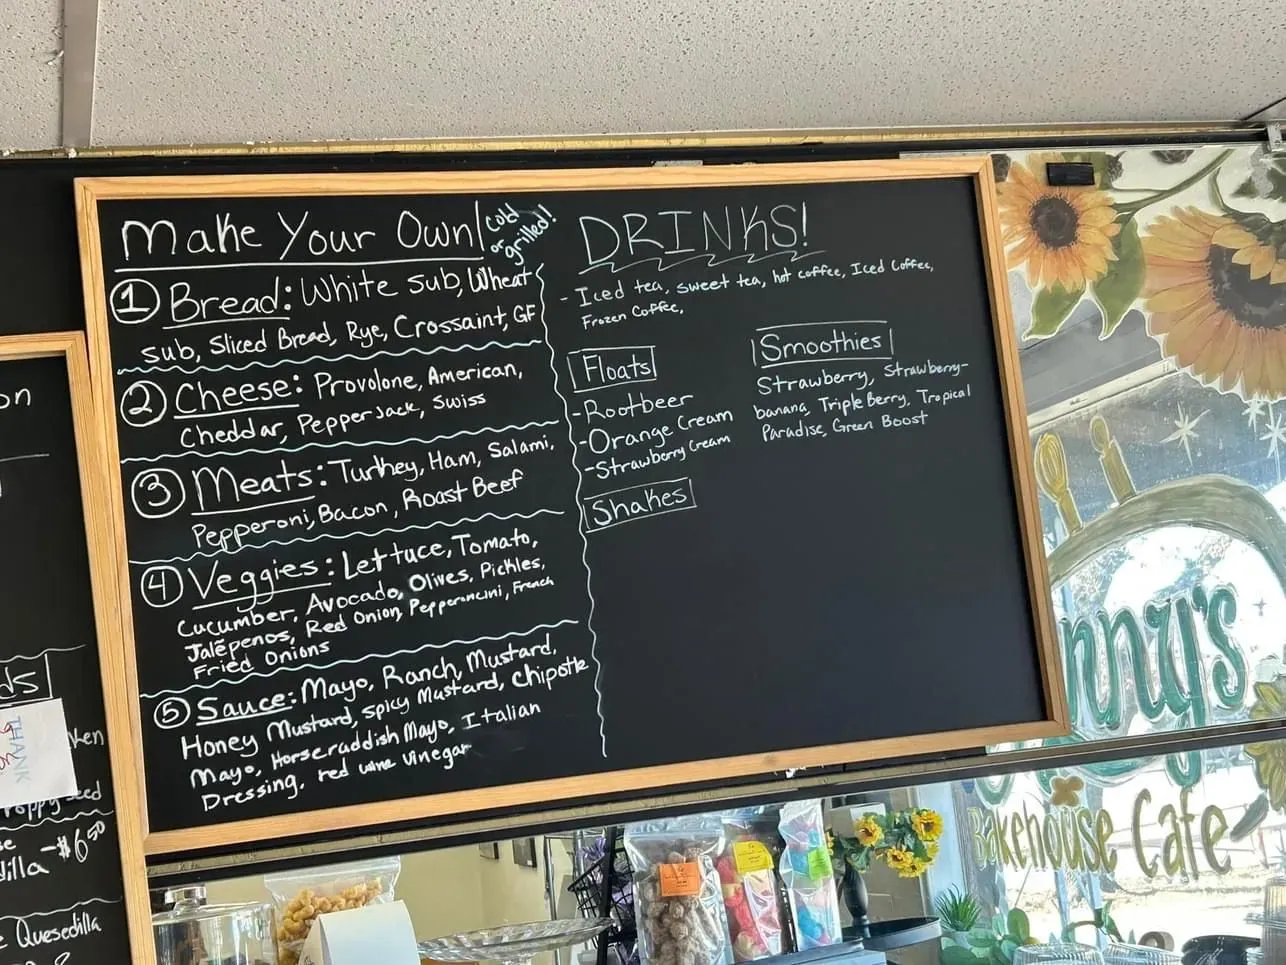 Make Your Own
cold
or
grilled!
① Bread: White sub, Wheat
sub, Sliced Bread, Rye, Crossaint, GF
② Cheese: Provolone, American,
Cheddar, Pepper Jack, Swiss
③ Meats: Turkey, Ham, Salami,
Pepperoni, Bacon, Roast Beef
④ Veggies: Lettuce, Tomato,
Cucumber, Avocado, Olives, Pickles,
Jalepenos, Red Onion, Pepperoncini, French
Fried Onions
⑤ Sauce: Mayo, Ranch, Mustard,
Honey Mustard, Spicy Mustard, Chipotle
Mayo, Horseraddish Mayo, Italian
Dressing, red wine vinegar
DRINKS!
- Iced tea, sweet tea, hot coffee, Iced Coffee,
Frozen Coffee,
Floats
- Rootbeer
- Orange Cream
- Strawberry Cream
Shakes
Smoothies
Strawberry, Strawberry-
banana, Triple Berry, Tropical
Paradise, Green Boost
THANK
Poppy seed
- $6 50
Quesedilla
nny's
Bakehouse Cafe